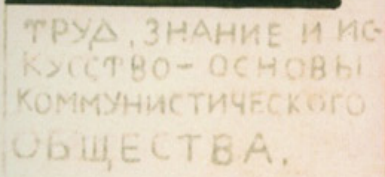 ТРУД, ЗНАНИЕ И ИС-
КУССТВО - ОСНОВЫ
КОММУНИСТИЧЕСКОГО
ОБЩЕСТВА.